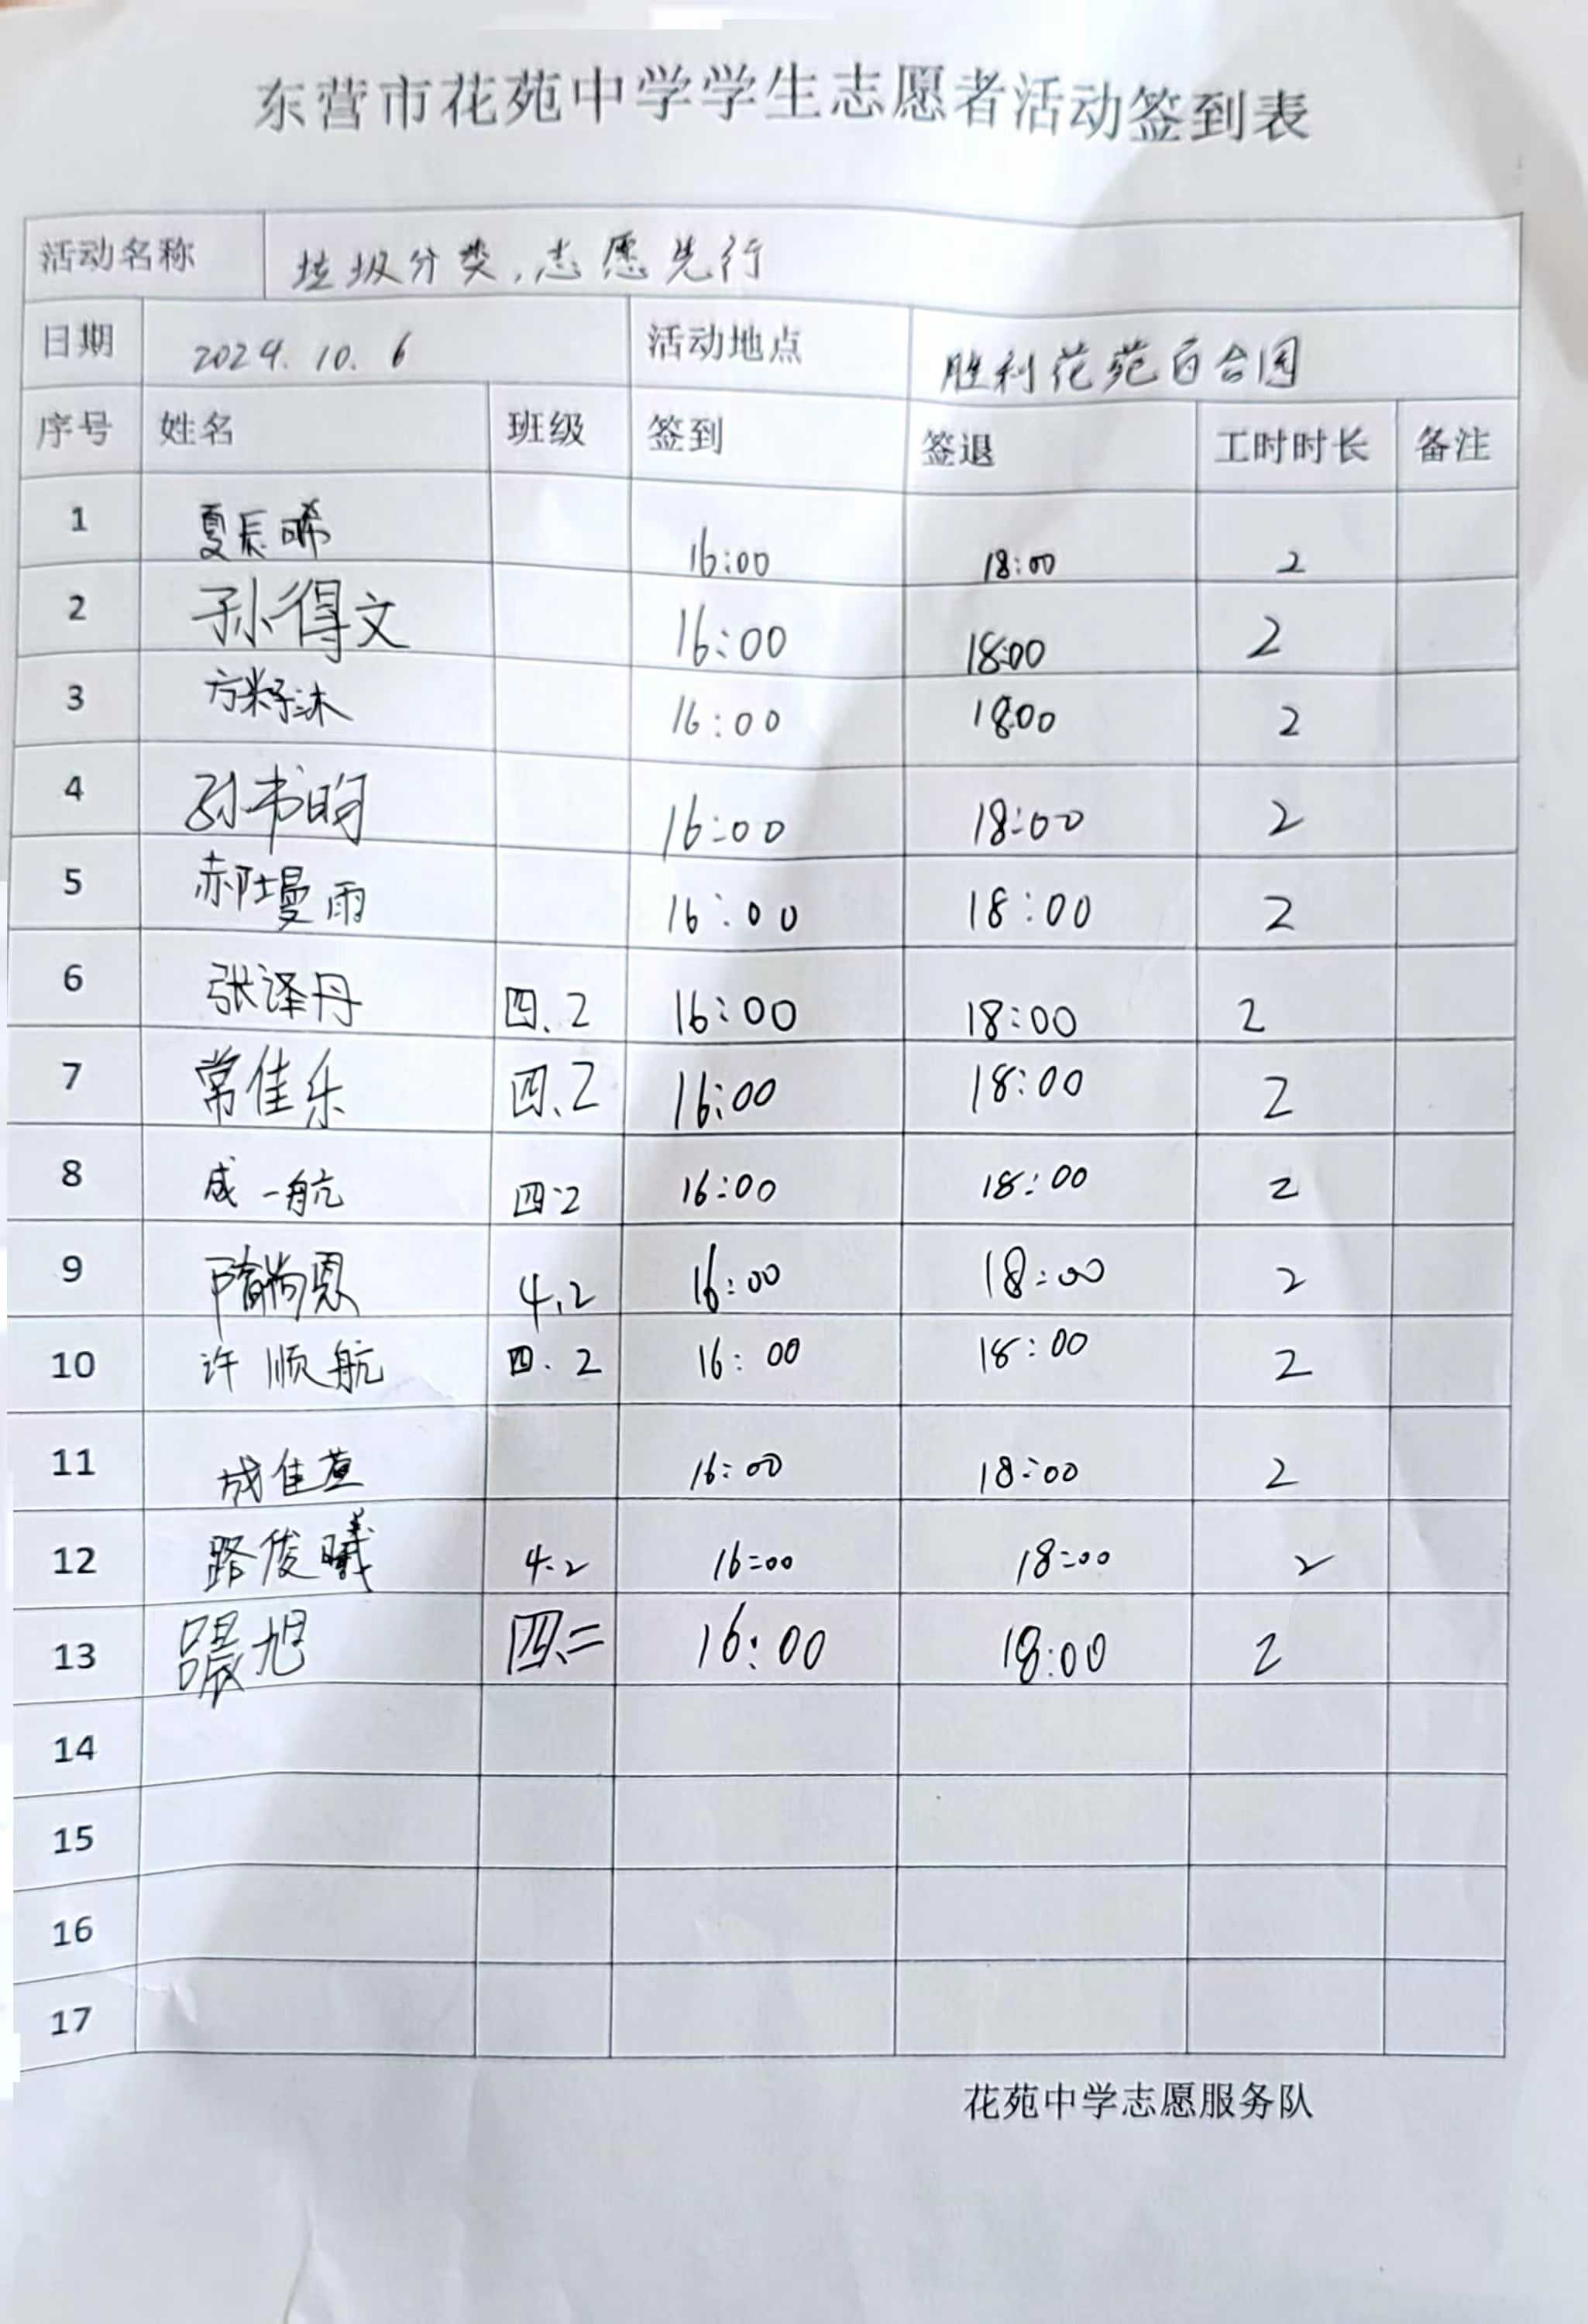 东营市花苑中学学生志愿者活动签到表
活动名称 垃圾分类,志愿先行
日期 2024.10.6 活动地点 胜利花苑百合园
序号 姓名 班级 签到 签退 工时时长 备注
1 夏辰晞 16:00 18:00 2
2 孙得文 16:00 18:00 2
3 方籽沐 16:00 18:00 2
4 孙书昀 16:00 18:00 2
5 郝墁雨 16:00 18:00 2
6 张译丹 四.2 16:00 18:00 2
7 常佳乐 四.2 16:00 18:00 2
8 成一航 四·2 16:00 18:00 2
9 隋尚恩 4.2 16:00 18:00 2
10 许顺航 四.2 16:00 18:00 2
11 成佳萱 16:00 18:00 2
12 路俊曦 4.2 16:00 18:00 2
13 旭 四.二 16:00 18:00 2
14
15
16
17
花苑中学志愿服务队